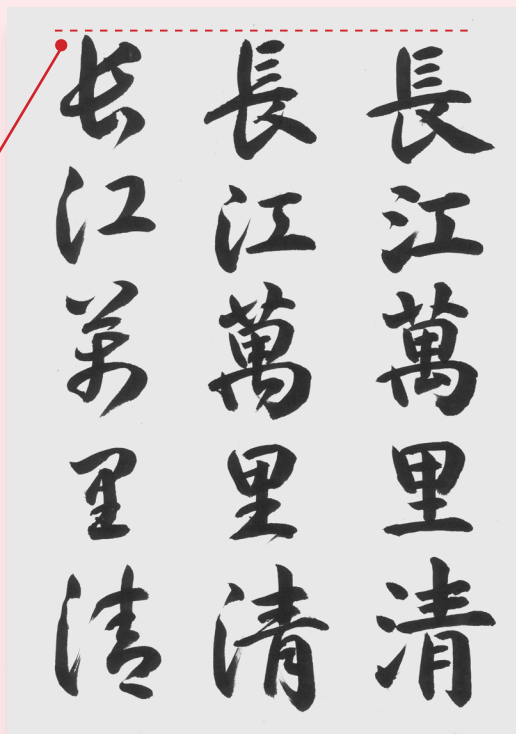 長江萬里清
長江萬里清
长江萬里清